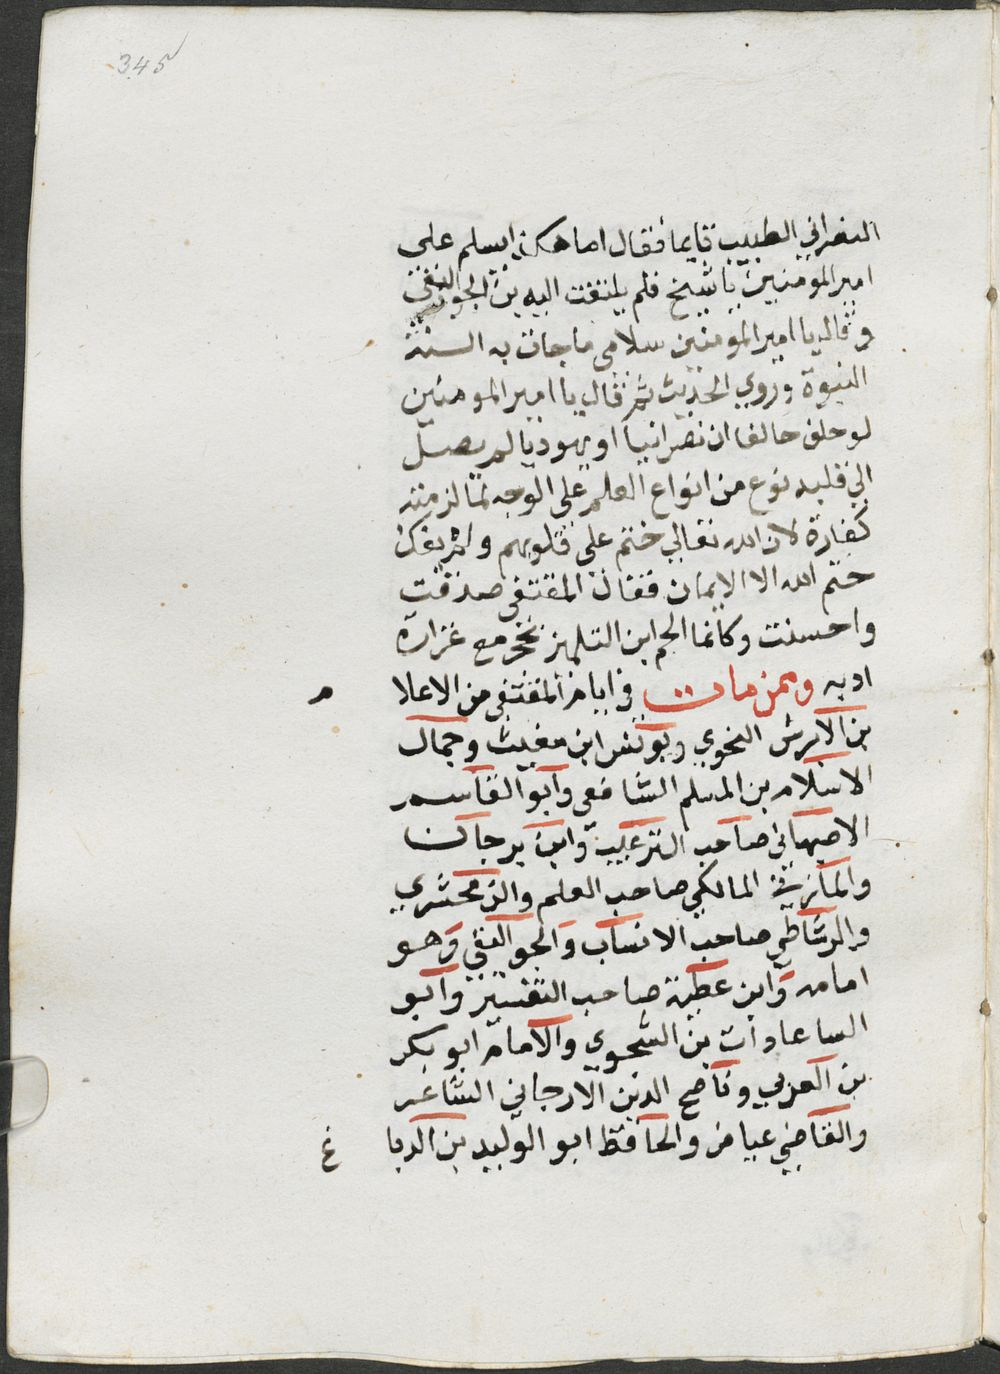 345
النصراني الطبيب قايما فقال اما هكذا يسلم علي
امير المومنين يا شيخ فلم يلتفت اليه بن الجواليقي
وقال يا امير المومنين سلامي ما جات به السنة
النبوة وروي الحديث ثم قال يا امير المومنين
لو حلف حالفا ان نصرانيا او يهوديا لم يصل
الي قلبه نوع من انواع العلم علي الوجه لما لزمته
كفارة لان الله تعالي ختم علي قلوبهم ولم يفك
ختم الله الا الايمان فقال المقتفي صدقت
واحسنت وكانما الجم ابن التلميذ بحجر مع غزارة
ادبه وممن مات في ايام المقتفي من الاعلا م
بن الابرش النحوي ويونس ابن مغيث وجمال
الاسلام بن المسلم الشافعي وابو القاسم
الاصبهاني صاحب الترغيب وابن برجان
والمازني المالكي صاحب العلم والزمخشري
والرشاطي صاحب الانساب والجواليقي وهو
امامه وابن عطية صاحب التفسير وابو
الساعادات بن الشجوي والامام ابو بكر
بن العربي وناصح الدين الارجاني الشاعر
والقاضي عياض والحافظ ابو الوليد بن الدبا غ